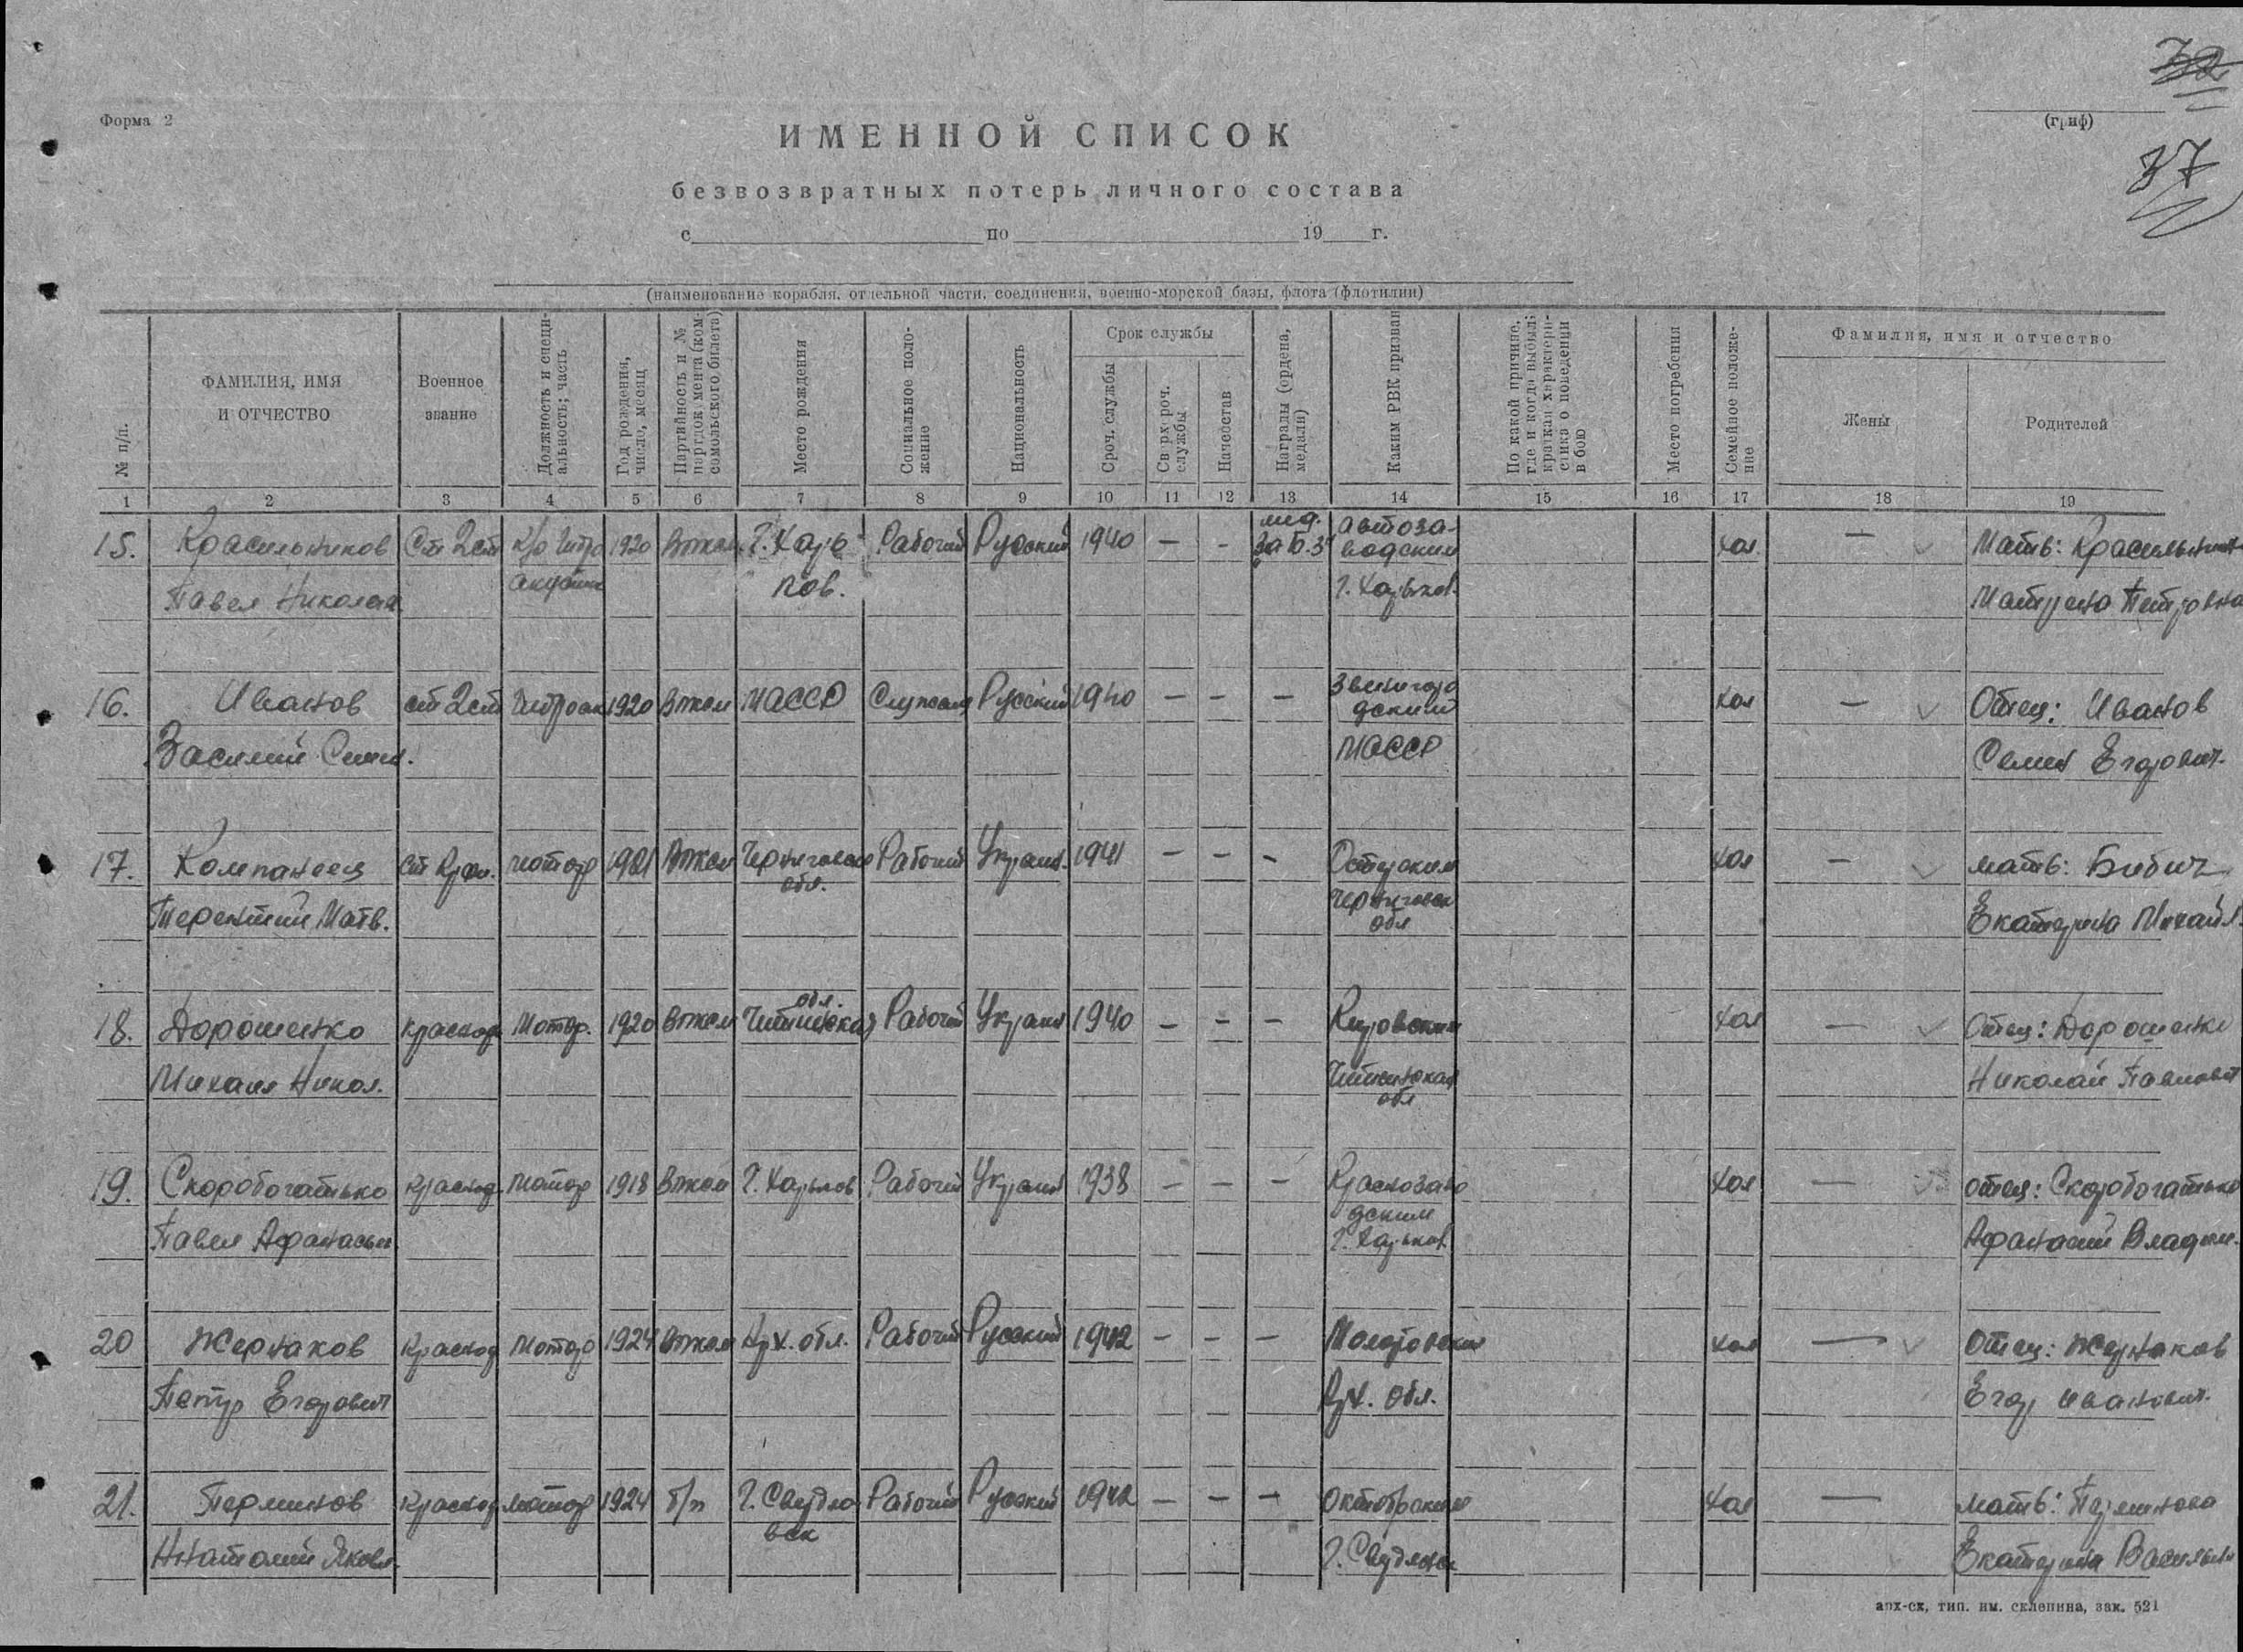 37
Форма 2
(гриф)
ИМЕННОЙ СПИСОК
37
безвозвратных потерь личного состава
с по 19 г.
(наименование корабля, отдельной части, соединения, военно-морской базы, флота (флотилии)
№ п/п.
ФАМИЛИЯ, ИМЯ
И ОТЧЕСТВО
Военное
звание
Должность и специ-
альность; часть
Год рождения,
число, месяц
Партийность и №
партдокумента (ком-
сомольского билета)
Место рождения
Социальное поло-
жение
Национальность
Срок службы
Сроч. службы
Сверхсроч.
службы
Начсостав
Награды (ордена,
медали)
Каким РВК призван
По какой причине,
где и когда выбыл;
краткая характери-
стика о поведении
в бою
Место погребения
Семейное положе-
ние
Фамилия, имя и отчество
Жены
Родителей
1 2 3 4 5 6 7 8 9 10 11 12 13 14 15 16 17 18 19
мед. автоза-
15. Красильников Ст 2ст К/о Гидро 1920 Влксм г. Харь- Рабочий Русский 1940 – – За Б.З. водским хол – Мать: Красильник
Павел Николаев акустик ков. г. Харьков. Матрена Петровна
Звенигоро
16. Иванов ст 2ст Гидроак 1920 Влксм МАССР Служащ Русский 1940 – – – дским хол – Отец: Иванов
Василий Семен. МАССР Семен Егорович.
17. Компанеец ст Крфл. мотор 1921 Влксм Черниговск Рабочий Украин. 1941 – – – Остерским хол – мать: Бибич
обл. Черниговск
Терентий Матв. обл Екатерина Михайл.
обл.
18. Дорошенко Краснофл Мотор. 1920 Влксм Читинская Рабочий Украин 1940 – – – Кировским хол – Отец: Дорошенко
Михаил Никол. Читинская Николай Павлович
обл
19. Скоробогатько Краснофл Мотор 1918 Влксм г. Харьков Рабочий Украин 1938 – – – Краснозаво хол – отец: Скоробогатько
дским
Павел Афанасьев г. Харьков Афанасий Владим.
20 Жернаков Краснофл Мотор 1924 Влксм Арх. обл. Рабочий Русский 1942 – – – Молотовским хол – Отец: Жернаков
Петр Егорович Арх. Обл. Егор Иванович.
21. Перминов Краснофл мотор 1924 б/п г. Свердло Рабочий Русский 1942 – – – Октябрьским хол – мать: Перминова
вск
Анатолий Яковл. г. Свердловск Екатерина Васильевн
арх-ск, тип. им. склепина, зак. 521